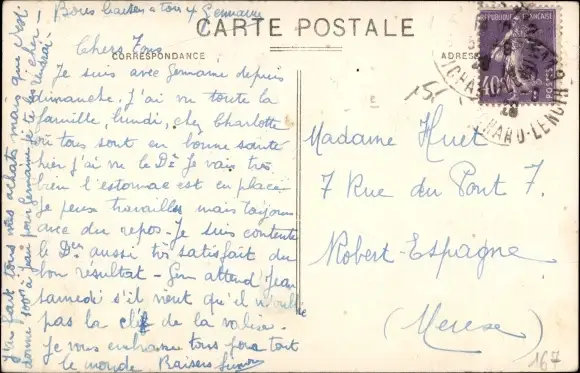 Bons baisers a tous 4 Germaine
CARTE POSTALE
CORRESPONDANCE
ADRES
RÉPUBLIQUE FRANÇAISE
40c
POSTES
RICHARD-LENOIR
Chers Tous
Je suis avec Germaine depuis
dimanche. J'ai vu toute la
famille, lundi, chez Charlotte
tous sont en bonne santé
hier j'ai vu le Dr Je vais très
bien l'estomac est en place
Je peux travailler mais toujours
avec du repos. Je suis contente
le Dr aussi très satisfait du
bon résultat - Gem attend Jean
samedi s'il vient qu'il n'oublie
pas la clef de la valise.
Je vous embrasse tous pour tout
le monde. Baisers Simone
J'ai fait tous mes achats mais que c'est
cher
Madame Huet
7 Rue du Pont 7.
Robert-Espagne
(Meuse)
167